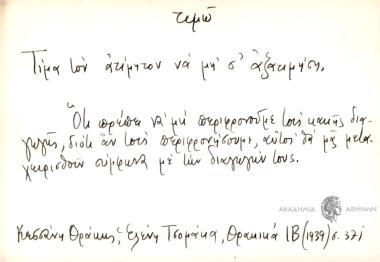 τιμῶ
Τίμα τὸν ἀτίμητον νὰ μή σ' ἀξατιμήση.
Ὅτι πρέπει νὰ μὴ περιφρονοῦμε τοὺς κακῆς δια-
γωγῆς, διότι ἂν τοὺς περιφρονήσουμε, αὐτοὶ θὰ μᾶς μετα-
χειρισθοῦν σύμφωνα με τὴν διαγωγήν τους.
ΑΚΑΔΗΜΙΑ ΑΘΗΝΩΝ
Θράκης, Ἑλένη Τσομάκα, Θρακικά ΙΒ (1939) σ. 371